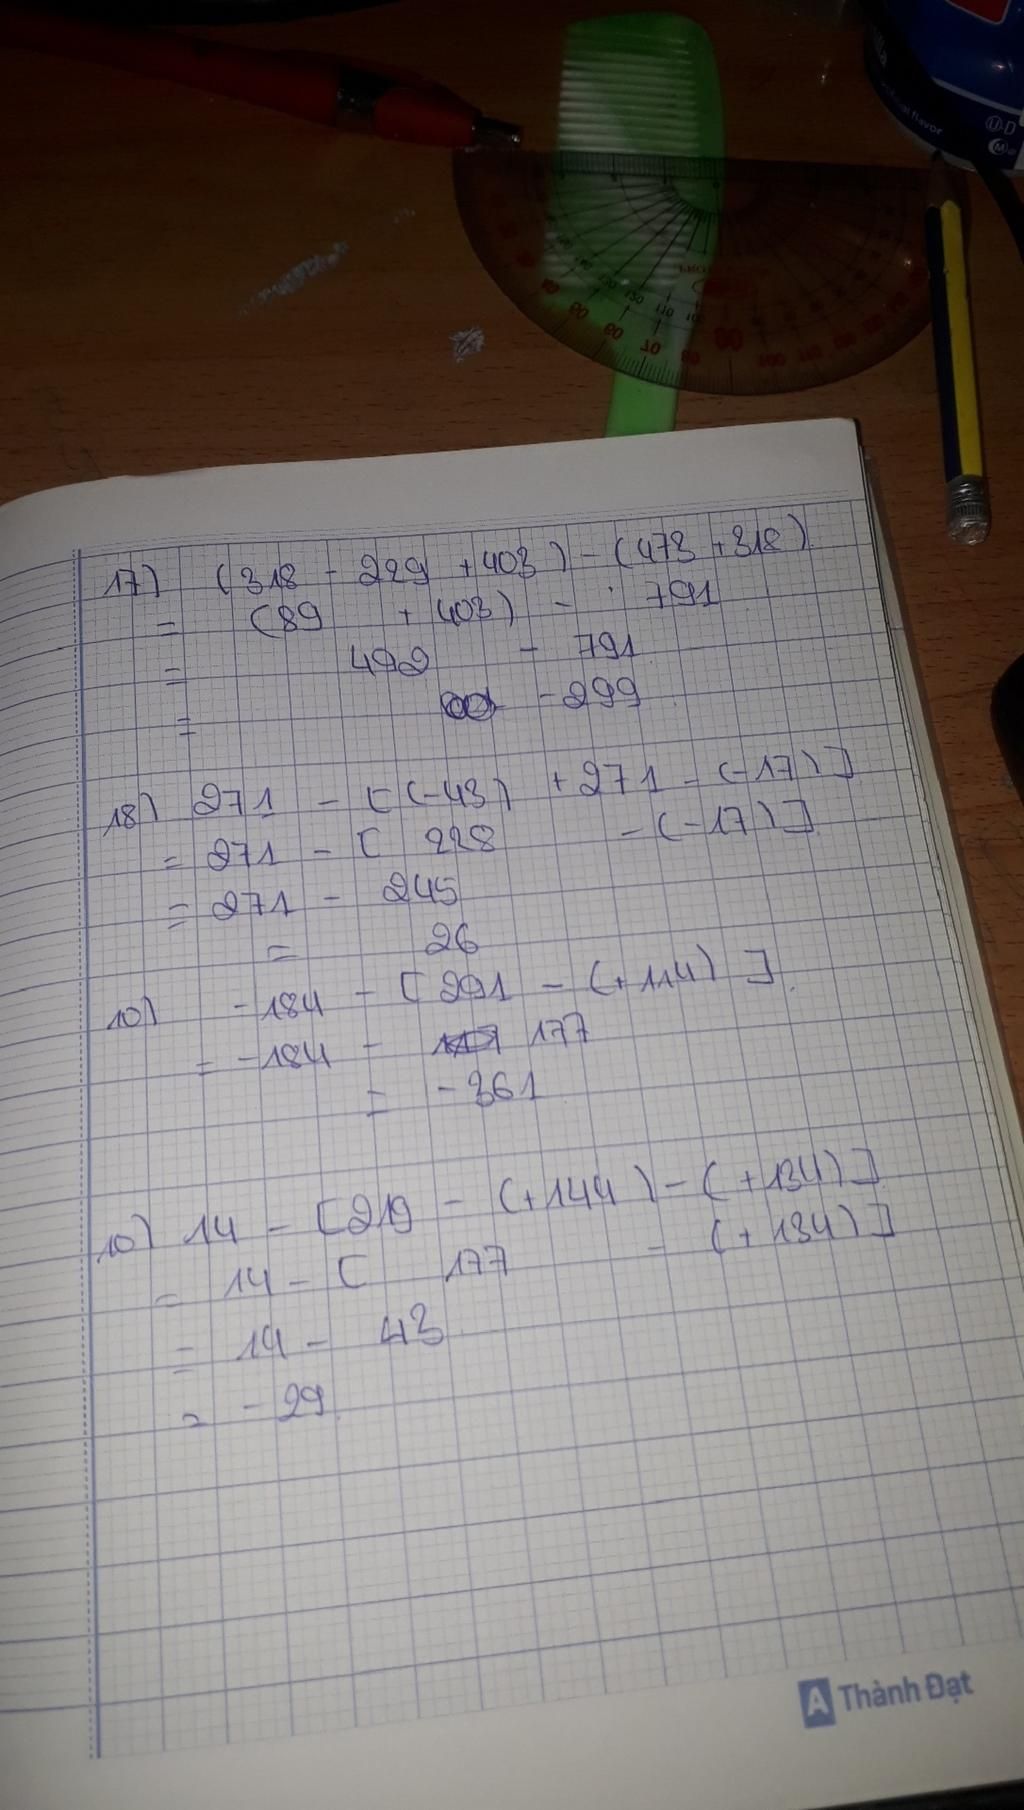 17) (318 - 229 + 403) - (473 + 318)
= (89 + 403) - 791
= 492 - 791
= - 299
18) 271 - [(-43) + 271 - (-17)]
= 271 - [ 228 - (-17)]
= 271 - 245
= 26
10) -184 - [291 - (+114)].
= -184 - 177
= -361
10) 14 - [219 - (+144) - (+134)]
= 14 - [ 177 - (+134)]
= 14 - 43
= - 29
A Thành Đạt